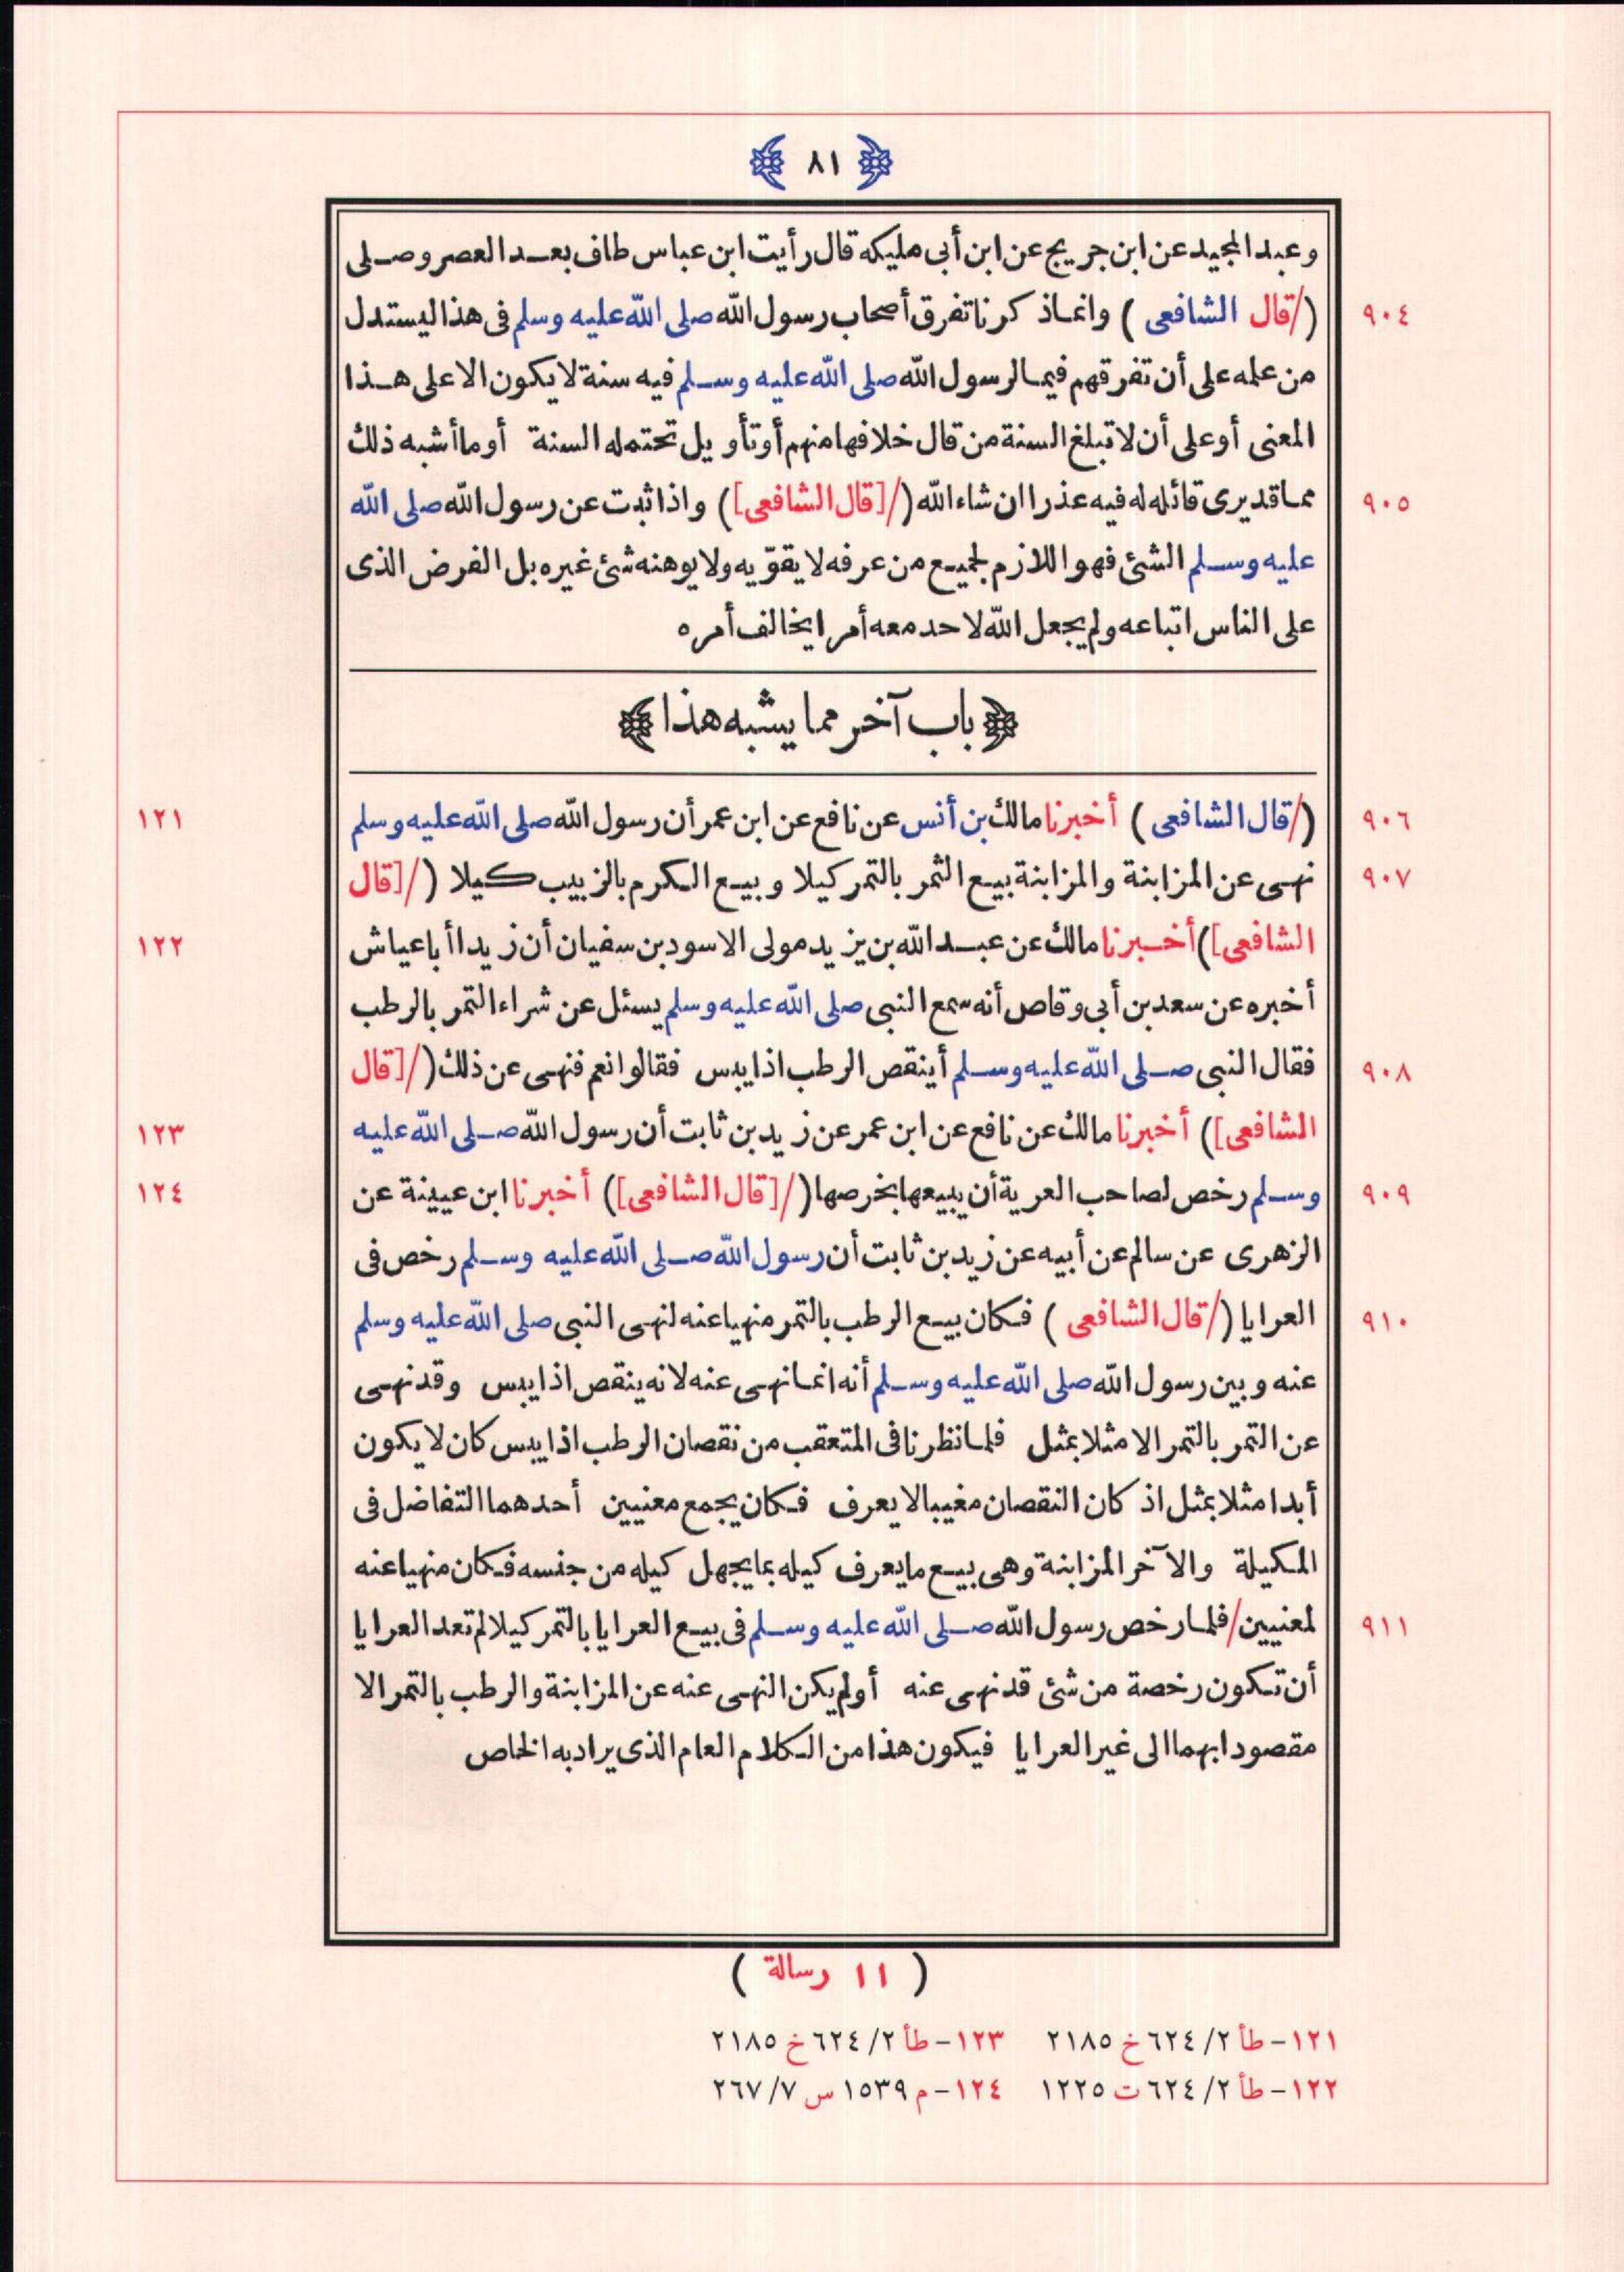 ٨١
وعبد المجيد عن ابن جريج عن ابن أبى مليكه قال رأيت ابن عباس طاف بعد العصر وصلى
٩٠٤ (/قال الشافعى ) وانما ذكرنا تفرق أصحاب رسول الله صلى الله عليه وسلم فى هذا ليستدل
من علمه على أن تفرقهم فيما لرسول الله صلى الله عليه وسلم فيه سنة لا يكون الا على هذا
المعنى أو على أن لا تبلغ السنة من قال خلافها منهم أو تأويل تحتمله السنة أو ما أشبه ذلك
٩٠٥ مما قد يرى قائله له فيه عذرا ان شاء الله (/[قال الشافعى]) واذا ثبت عن رسول الله صلى الله
عليه وسلم الشئ فهو اللازم لجميع من عرفه لا يقوّيه ولا يوهنه شئ غيره بل الفرض الذى
على الناس اتباعه ولم يجعل الله لاحد معه أمرا يخالف أمره
﴿باب آخر مما يشبه هذا﴾
٩٠٦ (/قال الشافعى ) أخبرنا مالك بن أنس عن نافع عن ابن عمر أن رسول الله صلى الله عليه وسلم ١٢١
٩٠٧ نهى عن المزابنة والمزابنة بيع الثمر بالتمر كيلا وبيع الكرم بالزبيب كيلا (/[قال
الشافعى]) أخبرنا مالك عن عبد الله بن يزيد مولى الاسود بن سفيان أن زيدا أبا عياش ١٢٢
أخبره عن سعد بن أبى وقاص أنه سمع النبى صلى الله عليه وسلم يسئل عن شراء التمر بالرطب
٩٠٨ فقال النبى صلى الله عليه وسلم أينقص الرطب اذا يبس فقالوا نعم فنهى عن ذلك (/[قال
الشافعى]) أخبرنا مالك عن نافع عن ابن عمر عن زيد بن ثابت أن رسول الله صلى الله عليه ١٢٣
٩٠٩ وسلم رخص لصاحب العرية أن يبيعها بخرصها (/[قال الشافعى]) أخبرنا ابن عيينة عن ١٢٤
الزهرى عن سالم عن أبيه عن زيد بن ثابت أن رسول الله صلى الله عليه وسلم رخص فى
٩١٠ العرايا (/قال الشافعى ) فكان بيع الرطب بالتمر منهيا عنه لنهى النبى صلى الله عليه وسلم
عنه وبين رسول الله صلى الله عليه وسلم أنه انما نهى عنه لانه ينقص اذا يبس وقد نهى
عن التمر بالتمر الا مثلا بمثل فلما نظرنا فى المتعقب من نقصان الرطب اذا يبس كان لا يكون
أبدا مثلا بمثل اذ كان النقصان مغيبا لا يعرف فكان يجمع معنيين أحدهما التفاضل فى
المكيلة والآخر المزابنة وهى بيع ما يعرف كيله بما يجهل كيله من جنسه فكان منهيا عنه
٩١١ لمعنيين/فلما رخص رسول الله صلى الله عليه وسلم فى بيع العرايا بالتمر كيلا لم تعد العرايا
أن تكون رخصة من شئ قد نهى عنه أو لم يكن النهى عنه عن المزابنة والرطب بالتمر الا
مقصودا بهما الى غير العرايا فيكون هذا من الكلام العام الذى يراد به الخاص
( ١١ رسالة )
١٢١- طأ ٢/ ٦٢٤ خ ٢١٨٥ ١٢٣- طأ ٢/ ٦٢٤ خ ٢١٨٥
١٢٢- طأ ٢/ ٦٢٤ ت ١٢٢٥ ١٢٤- م ١٥٣٩ س ٧/ ٢٦٧